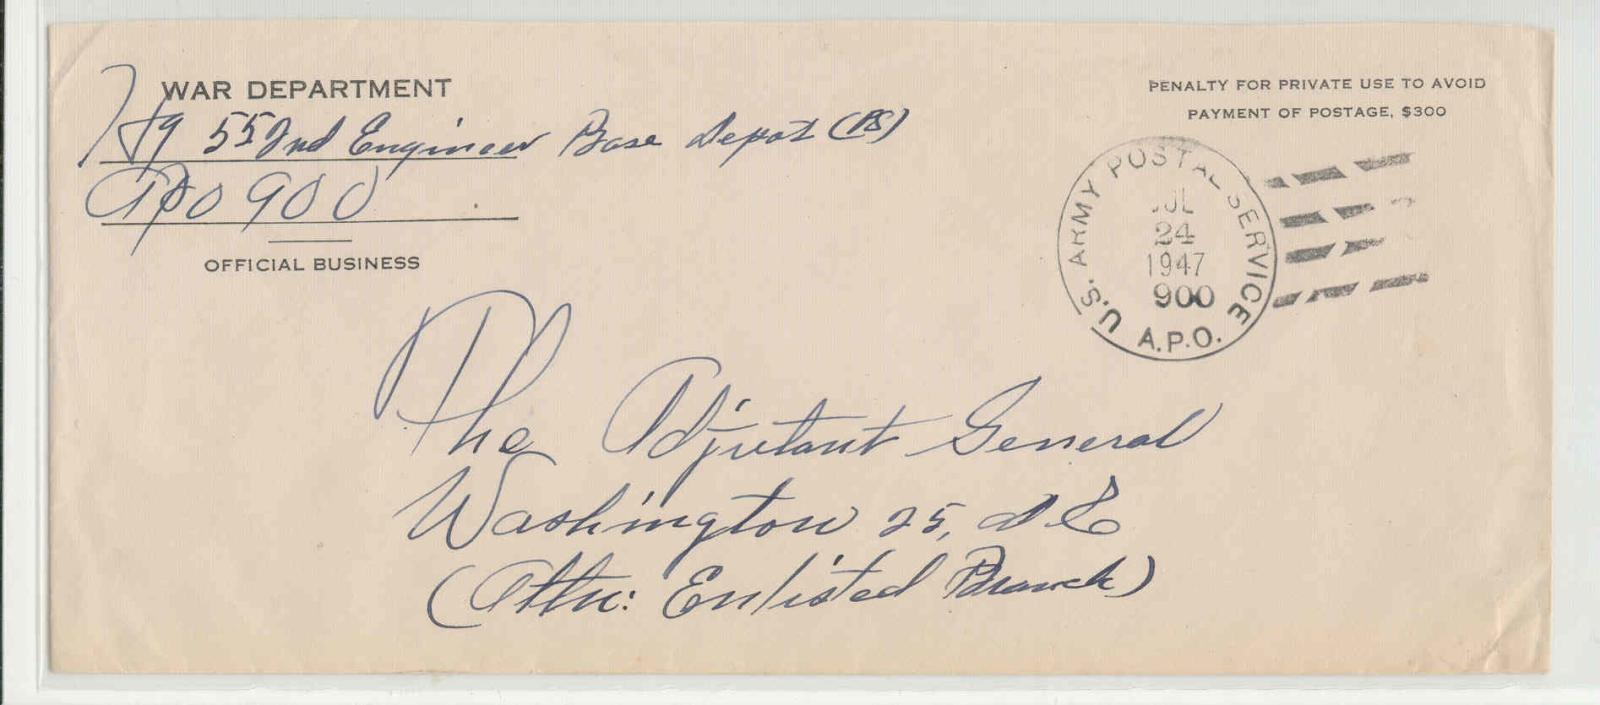 WAR DEPARTMENT
Hq 552nd Engineer Base Depot (PS)
APO 900
OFFICIAL BUSINESS
PENALTY FOR PRIVATE USE TO AVOID
PAYMENT OF POSTAGE, $300
U.S. ARMY POSTAL SERVICE
JUL
24
1947
900
A.P.O.
The Adjutant General
Washington 25, D C
(Attn: Enlisted Branch)